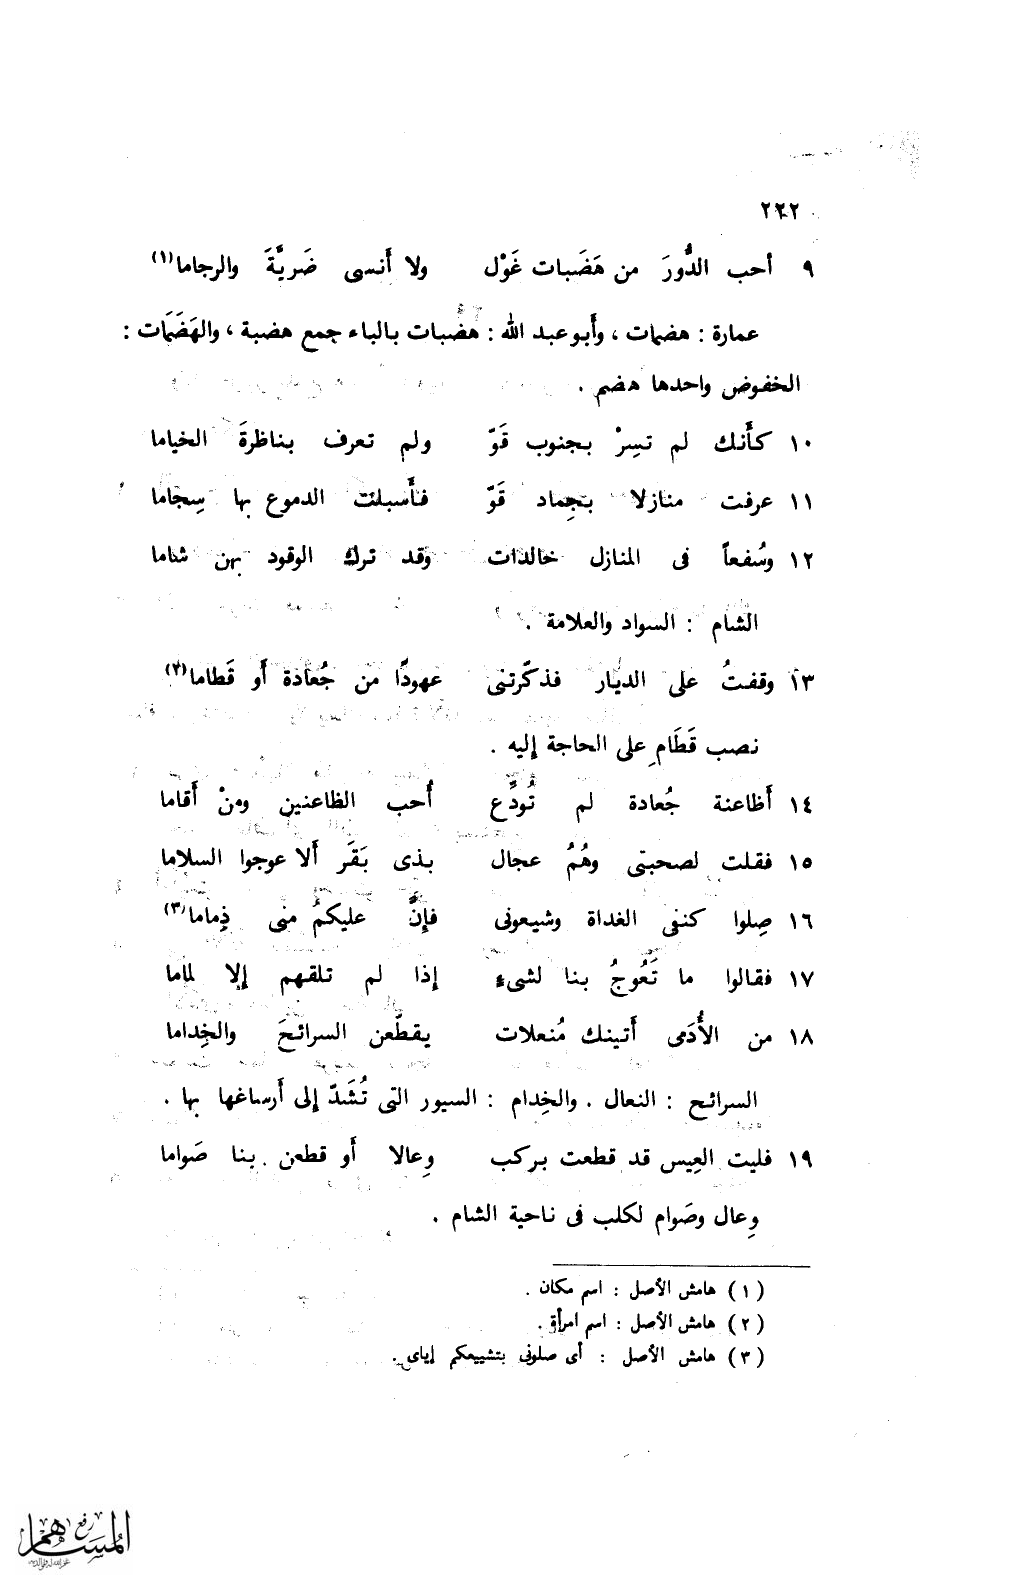 ٢٢٢
٩ أحب الدُّورَ من هَضَبات غَوْل ولا أَنسى ضَريَّةَ والرجاما(١)
عمارة : هضمات ، وأَبو عبد الله : هضبات بالباء جمع هضبة ، والهَضَمَات :
الخفوض واحدها هضم .
١٠ كأَنك لم تسِرْ بجنوب قَوّ ولم تعرف بناظرةَ الخياما
١١ عرفت منازلا بجِماد قَوّ فأَسبلت الدموع بها سِجاما
١٢ وسُفعاً فى المنازل خالدات وقد ترك الوقود بهن شاما
الشام : السواد والعلامة .
١٣ وقفتُ على الديار فذكّرتنى عهودًا من جُعادة أَو قَطاما(٢)
نصب قَطَامِ على الحاجة إليه .
١٤ أَظاعنة جُعادة لم تُودِّع أُحب الظاعنين ومنْ أَقاما
١٥ فقلت لصحبتى وهُمُ عجال بذى بَقَر أَلا عوجوا السلاما
١٦ صِلوا كنفى الغداة وشيعونى فإِنَّ عليكمُ منى ذِماما(٣)
١٧ فقالوا ما تَعُوجُ بنا لشىءٍ إذا لم تلقهم إلا لماما
١٨ من الأُدَمى أَتينك مُنعلات يقطّعن السرائحَ والخِداما
السرائح : النعال . والخِدام : السيور التى تُشَدّ إلى أَرساغها بها .
١٩ فليت العِيس قد قطعت بركب وِعالا أَو قطعن بنا صَواما
وِعال وصَوام لكلب فى ناحية الشام .
(١) هامش الأصل : اسم مكان .
(٢) هامش الأصل : اسم امرأة .
(٣) هامش الأصل : أى صلونى بتشييعكم إياى .
رفع
المساهم